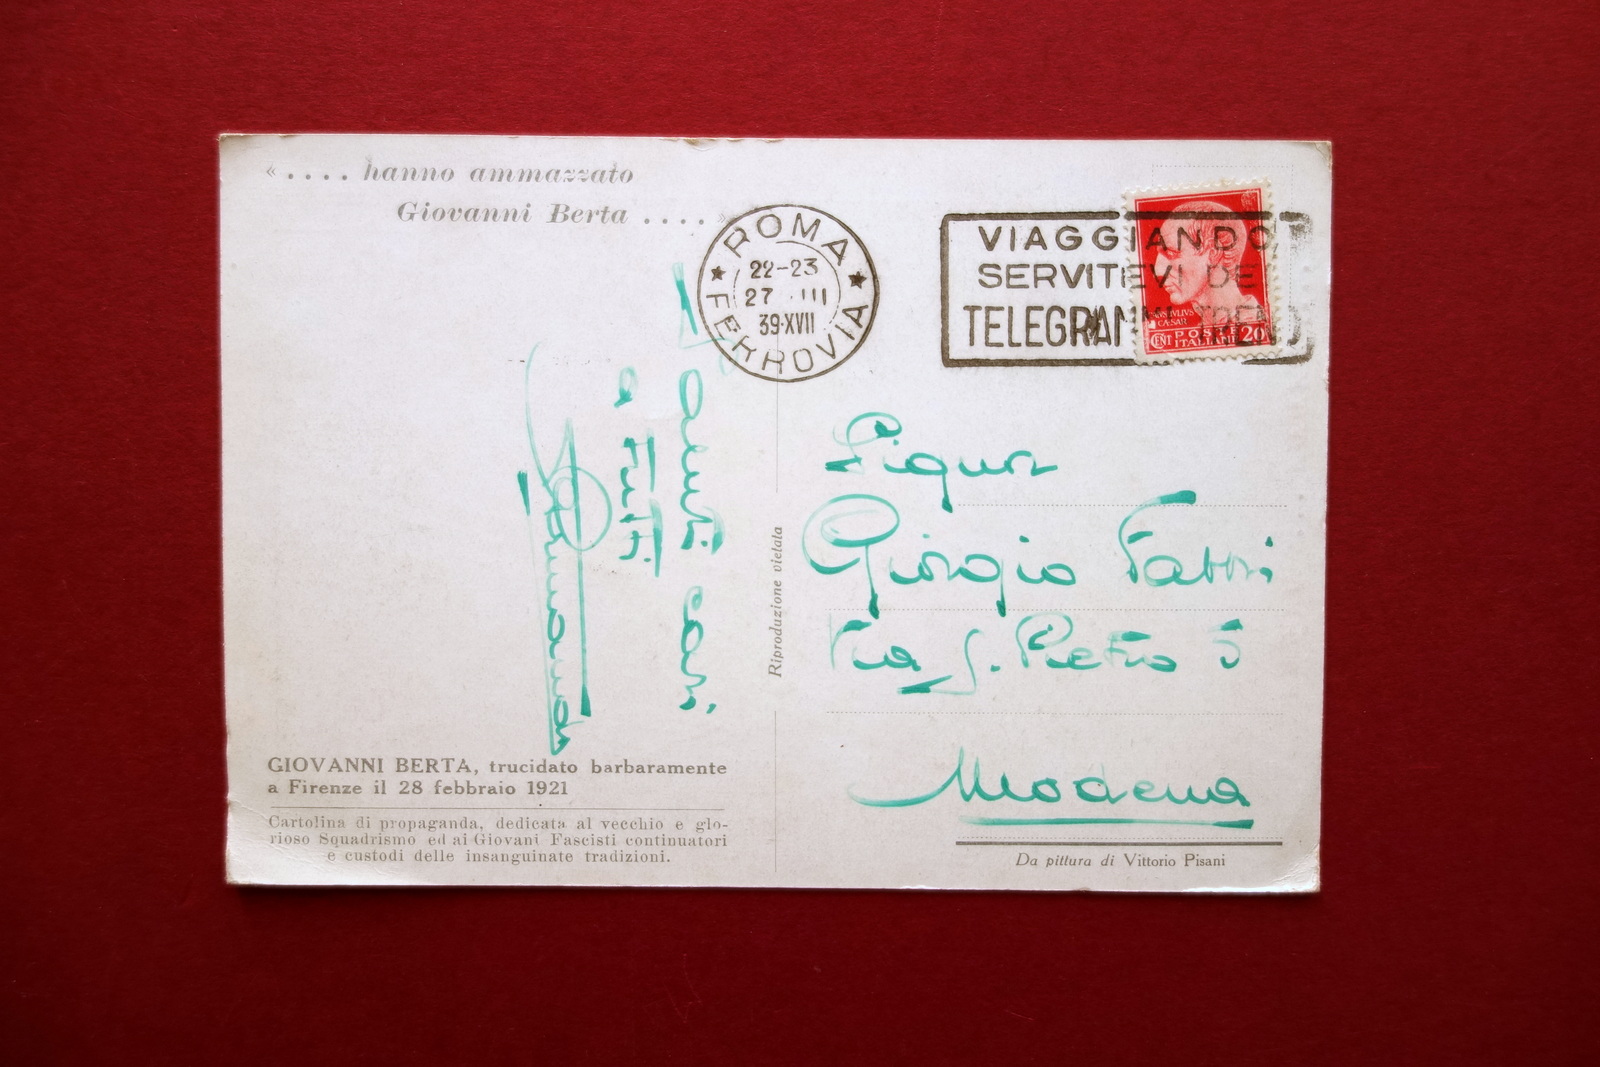 « . . . . hanno ammazzato
Giovanni Berta . . . . »
ROMA
22-23
27 . III
39·XVII
FERROVIA
VIAGGIANDO
SERVITEVI DE
TELEGRAMMI TRENO
CAESAR
CENT POSTE 20
ITALIANE
a tutti
cari
Signor
Giorgio Fabbri
Via S. Pietro 5
Modena
Riproduzione vietata
GIOVANNI BERTA, trucidato barbaramente
a Firenze il 28 febbraio 1921
Cartolina di propaganda, dedicata al vecchio e glo-
rioso Squadrismo ed ai Giovani Fascisti continuatori
e custodi delle insanguinate tradizioni.
Da pittura di Vittorio Pisani